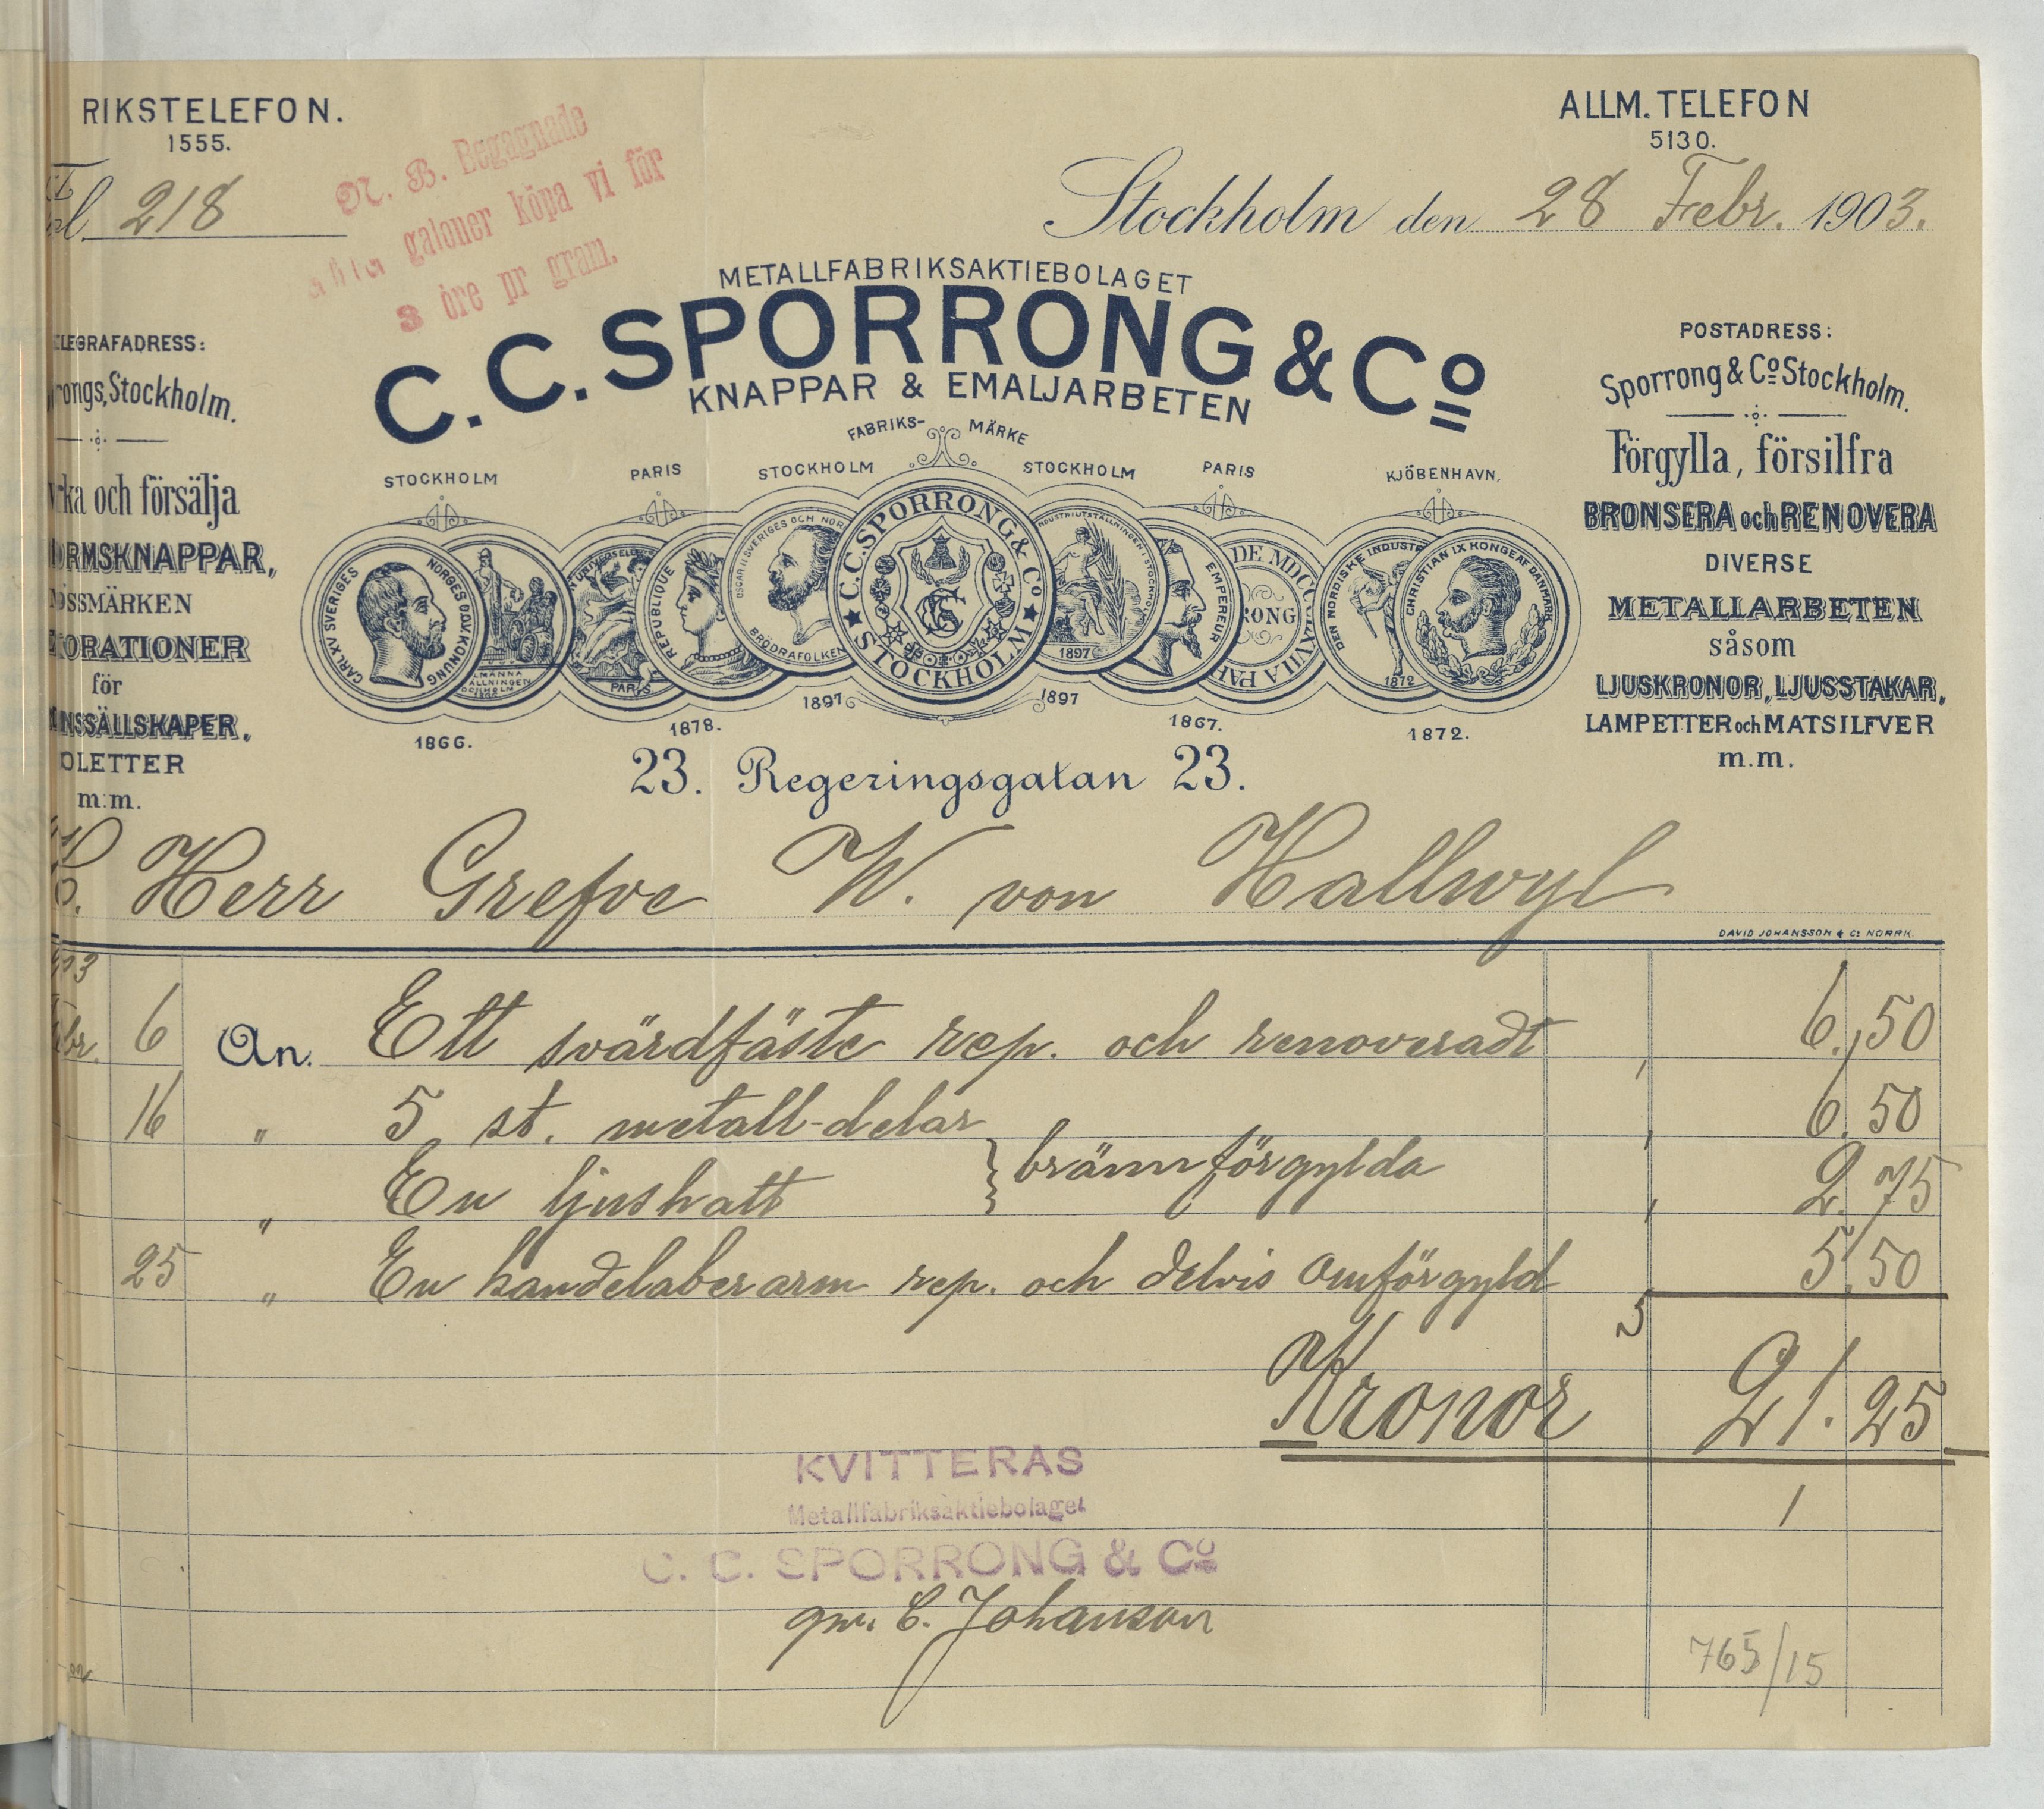 RIKSTELEFON.
1555.
218
N. B. Begagnade
galoner köpa vi för
3 öre pr gram.
ALLM. TELEFON
5130.
Stockholm den 28 Febr. 1903.
METALLFABRIKSAKTIEBOLAGET
C. C. SPORRONG & Co
KNAPPAR & EMALJARBETEN
FABRIKS- MÄRKE
LEGRAFADRESS:
rongs, Stockholm.
rka och försälja
ORMSKNAPPAR,
ÖSSMÄRKEN
KORATIONER
för
NSSÄLLSKAPER,
OLETTER
m.m.
POSTADRESS:
Sporrong & Co Stockholm.
Förgylla, försilfra
BRONSERA och RENOVERA
DIVERSE
METALLARBETEN
såsom
LJUSKRONOR, LJUSSTAKAR,
LAMPETTER och MATSILFVER
m.m.
STOCKHOLM PARIS STOCKHOLM STOCKHOLM PARIS KJÖBENHAVN.
CARL XV SVERIGES NORGES O. V. KONUNG
REPUBLIQUE
PARIS
OSCAR II SVERIGES OCH NOR
BRÖDRAFOLKEN
C. C. SPORRONG & Co
STOCKHOLM
INDUSTRIUTSTÄLLNINGEN I STOCKHOLM
1897
EMPEREUR
DEN NORDISKE INDUSTR
1872
CHRISTIAN IX KONGE AF DANMARK
1866. 1878. 1897 1897 1867. 1872.
23. Regeringsgatan 23.
Herr Grefve W. von Hallwyl
DAVID JOHANSSON & Co NORRK.
6 An. Ett svärdfäste rep. och renoveradt 6.,50
16 " 5 st. metall-delar 6.50
" En ljushatt } brännförgylda 2.75
25 " En kandelaberarm rep. och delvis omförgyld 5.50
Kronor 21.25
KVITTERAS
Metallfabriksaktiebolaget
C. C. SPORRONG & Co
gm. C. Johanson
765/15